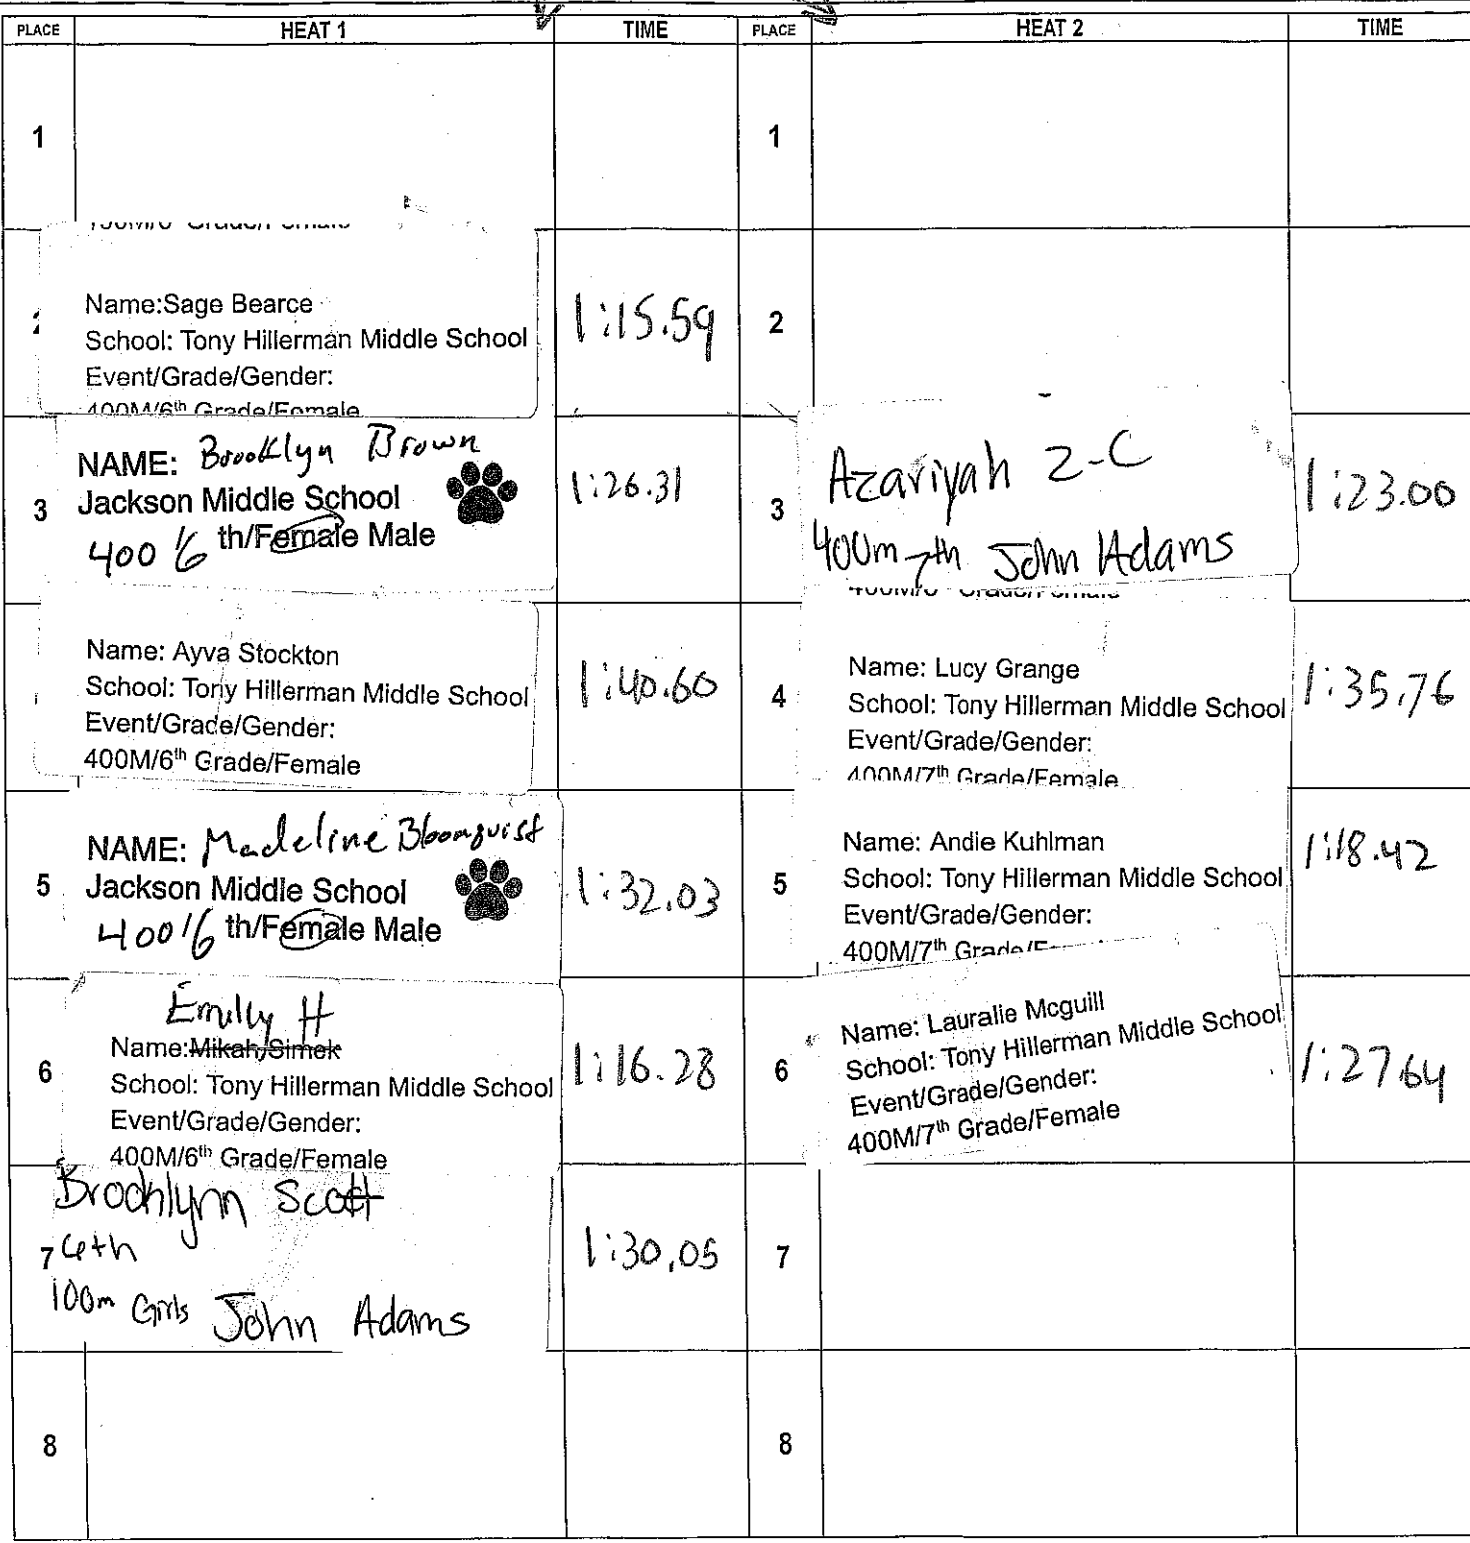 PLACE HEAT 1 TIME PLACE HEAT 2 TIME
1
1
Name:Sage Bearce
School: Tony Hillerman Middle School
Event/Grade/Gender:
400M/6th Grade/Female
1:15.59
2
3
NAME: Brooklyn Brown
Jackson Middle School
400 /6 th/Female Male
1:26.31
3
Azariyah Z-C
400m 7th John Adams
1:23.00
Name: Ayva Stockton
School: Tony Hillerman Middle School
Event/Grade/Gender:
400M/6th Grade/Female
1:40.60
4
Name: Lucy Grange
School: Tony Hillerman Middle School
Event/Grade/Gender:
400M/7th Grade/Female
1:35.76
5
NAME: Madeline Bloomquist
Jackson Middle School
400/6 th/Female Male
1:32.03
5
Name: Andie Kuhlman
School: Tony Hillerman Middle School
Event/Grade/Gender:
400M/7th Grade/
1:18.42
6
Emily H
Name:Mikah Simek
School: Tony Hillerman Middle School
Event/Grade/Gender:
400M/6th Grade/Female
1:16.28
6
Name: Lauralie Mcguill
School: Tony Hillerman Middle School
Event/Grade/Gender:
400M/7th Grade/Female
1:27.64
Brooklynn Scott
7 6th
100m Girls John Adams
1:30.05
7
8
8